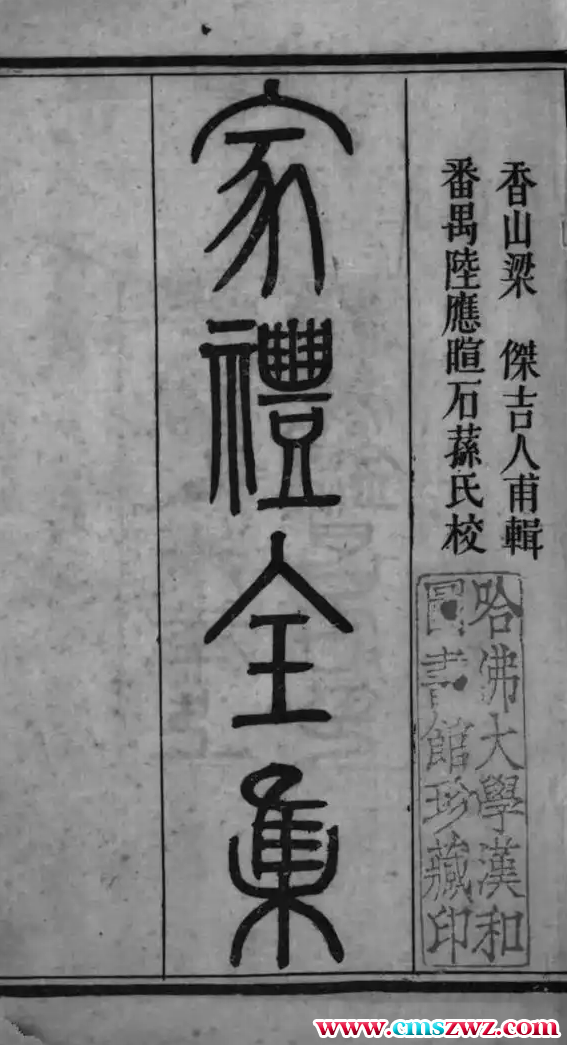 香山梁　傑吉人甫輯
番禺陸應暄石蓀氏校
家禮全集
哈佛大學漢和
圖書館珍藏印
www.cmszwz.com